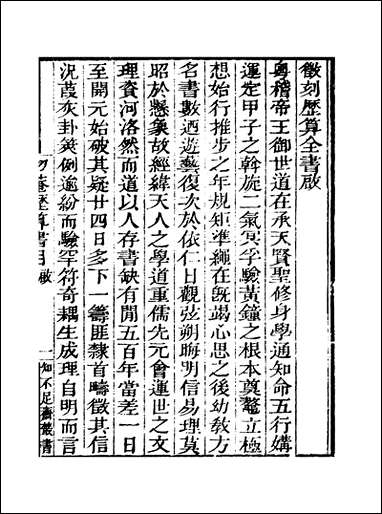 徵刻歷算全書啟
粵稽帝王御世道在承天賢聖修身學通知命五行媾
運定甲子之斡旋二氣冥孚驗黃鐘之根本奠鼇立極
想始行推步之年規矩準繩在旣竭心思之後幼敎方
名書數迺遊藝復次於依仁日觀弦朔晦明信易理莫
昭於懸象故經緯天人之學道重儒先元會運世之文
理資河洛然而道以人存書缺有閒五百年當差一日
至開元始破其疑廿四日多下一籌匪隸首疇徵其信
況葭灰卦氣例邇紛而驗罕符奇耦生成理自明而言
勿菴歷算書目 啟
一 知不足齋叢書